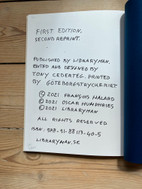 FIRST EDITION,
SECOND REPRINT.
PUBLISHED BY LIBRARYMAN.
EDITED AND DESIGNED BY
TONY CEDERTEG. PRINTED
BY GÖTEBORGSTRYCKERIET
© 2021 FRANÇOIS HALARD
© 2021 OSCAR HUMPHRIES
© 2021 LIBRARYMAN
ALL RIGHTS RESERVED
ISBN: 978-91-88113-40-5
LIBRARYMAN.SE